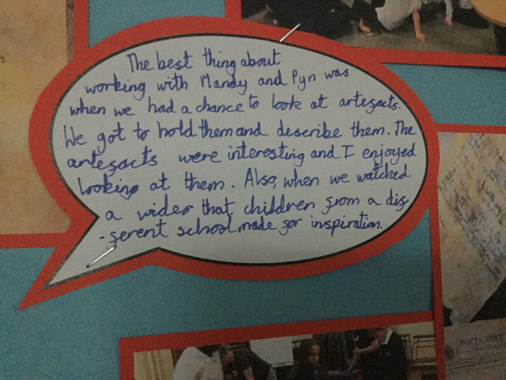 The best thing about
working with Mandy and Pyn was
when we had a chance to look at artefacts.
We got to hold them and describe them. The
artefacts were interesting and I enjoyed
looking at them. Also, when we watched
a video that children from a dif
-ferent school made for inspiration.